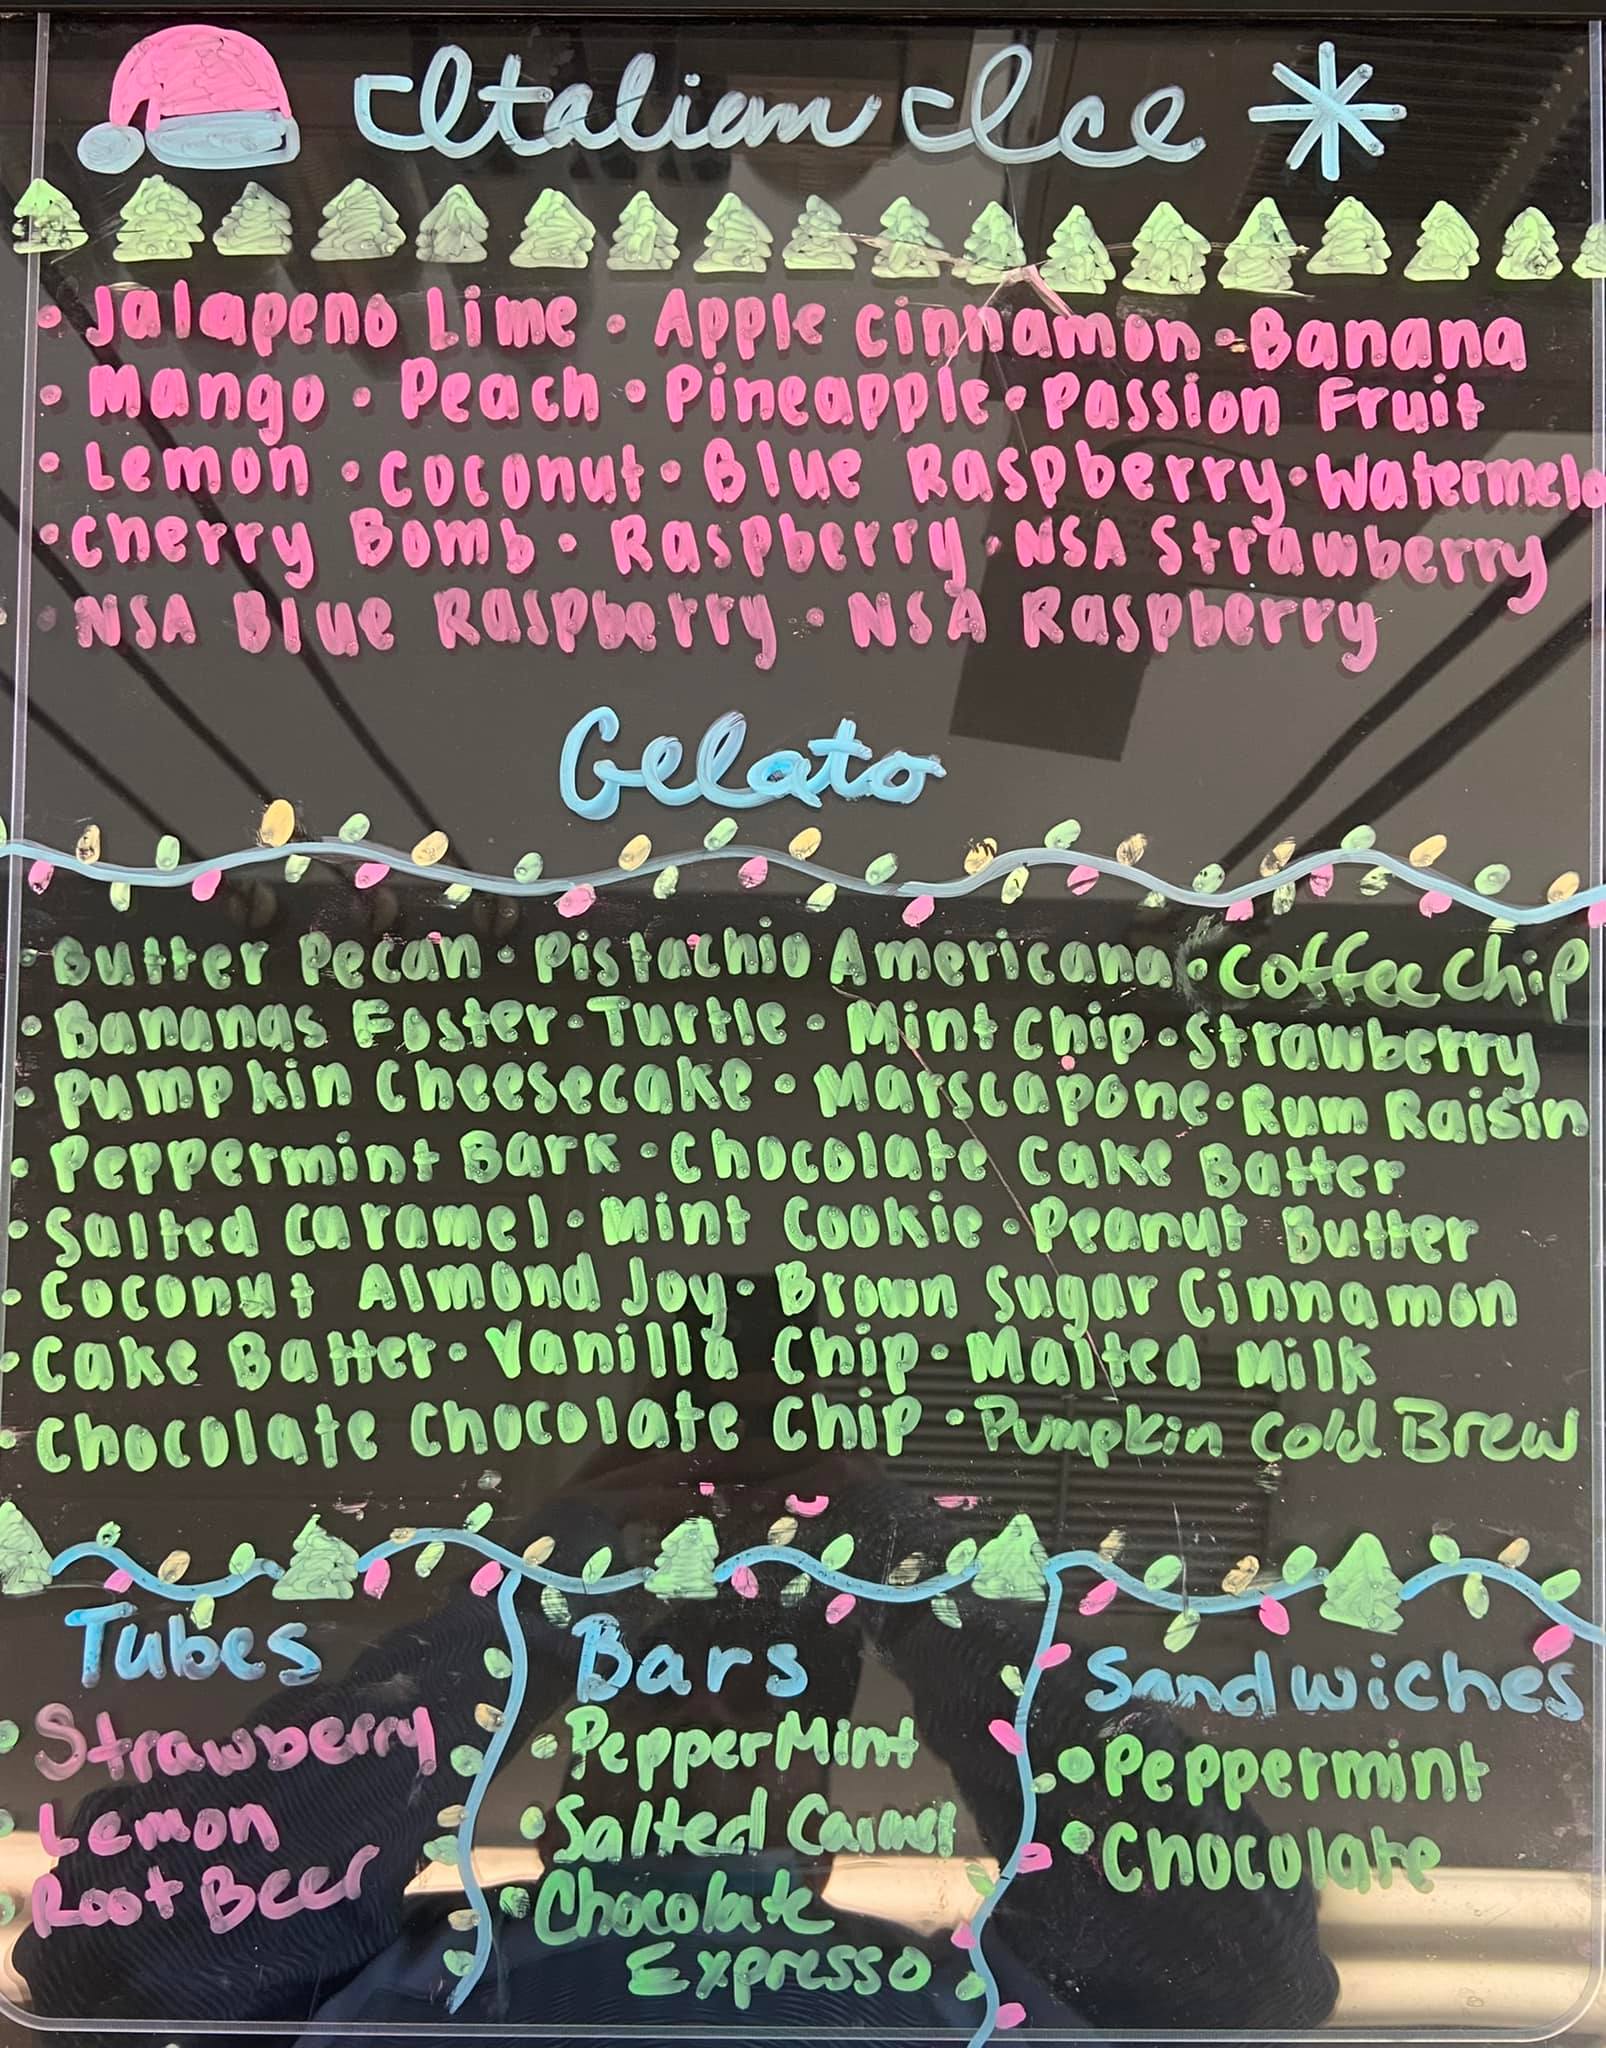 Italian Ice
• Jalapeno Lime • Apple Cinnamon • Banana
• Mango • Peach • Pineapple • Passion Fruit
• Lemon • Coconut • Blue Raspberry • Watermelo
• Cherry Bomb • Raspberry • NSA Strawberry
• NSA Blue Raspberry • NSA Raspberry
Gelato
• Butter Pecan • Pistachio Americana • Coffee Chip
• Bananas Foster • Turtle • Mint Chip • Strawberry
• Pumpkin Cheesecake • Marscapone • Rum Raisin
• Peppermint Bark • Chocolate Cake Batter
• Salted Caramel • Mint Cookie • Peanut Butter
• Coconut Almond Joy • Brown Sugar Cinnamon
• Cake Batter • Vanilla Chip • Malted Milk
• Chocolate Chocolate Chip • Pumpkin Cold Brew
Tubes
• Strawberry
• Lemon
• Root Beer
Bars
• PepperMint
• Salted Carmel
• Chocolate
Expresso
Sandwiches
• Peppermint
• Chocolate